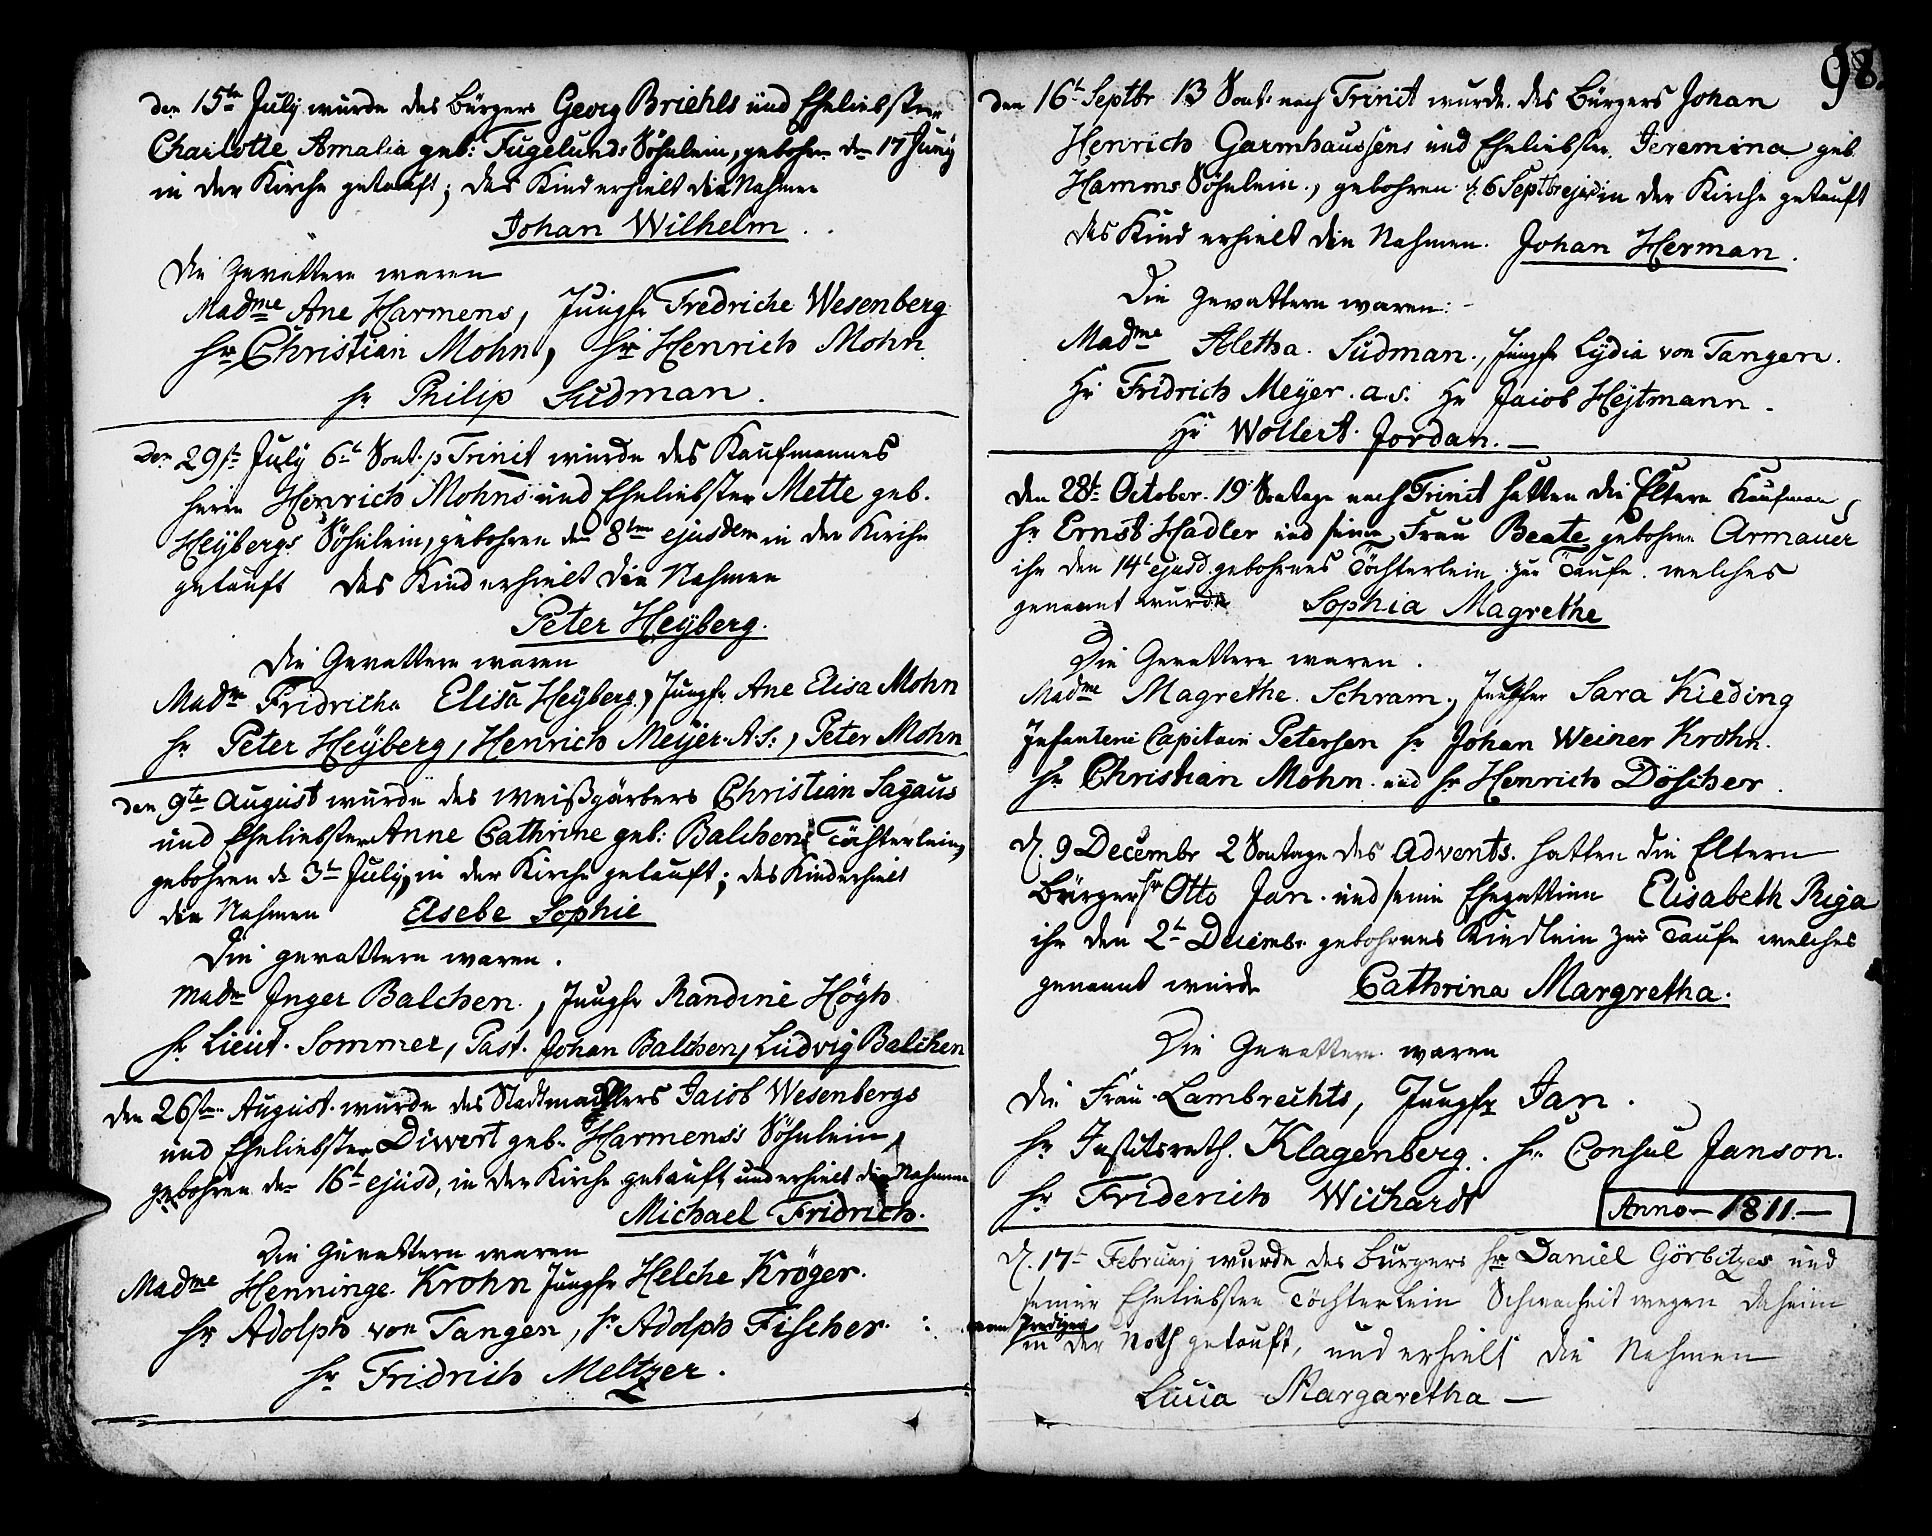 den 15te July wurde des Bürgers Georg Briehls und Eheliebsten
Charlotte Amalia geb: Fugelunds Söhnlein, gebohren den 17 Juny
in der Kirche getauft; das Kind erhielt die Nahmen
Johan Wilhelm
Die Gevattern waren
Madme Ane Harmens, Jungfr Fredriche Wesenberg
Hr Christian Mohn, Hr Henrich Mohn
Hr Philip Sudman.
Den 29st July 6t Sont. p Trinit wurde des Kaufmannes
Herrn Henrich Mohns und Eheliebsten Mette geb.
Heybergs Söhnlein, gebohren den 8ten ejusdem in der Kirche
getauft das Kind erhielt die Nahmen
Peter Heyberg.
Die Gevattern waren
Madm Fridricha Elisa Heyberg, Jungfr Ane Elisa Mohn
Hr Peter Heyberg, Henrich Meyer A.S:, Peter Mohn
den 9te August wurde des Weißgärbers Christian Sagaus
und Eheliebsten Anne Cathrine geb: Balchens Töchterlein,
gebohren d 3t July, in der Kirche getauft; das Kind erhielt
die Nahmen Elsebe Sophie
Die gevattern waren.
Madm Inger Balchen, Jungfr Randine Högh
Hr Lieut. Sommer, Past. Johan Balchen, Ludvig Balchen
den 26sten August wurde des Stadtmäcklers Jacob Wesenbergs
und Eheliebsten Diwert geb. Harmens's Söhnlein,
gebohren den 16t ejusd, in der Kirche getauft und erhielt die Nahmen
Michael Fridrich.
Die Gevattern waren
Madme Henninge Krohn Jungfr Helche Kröger.
Hr Adolph von Tangen, Hr Adolph Fischer.
Hr Fridrich Meltzer.
98.
den 16t Septbr 13 Sont: nach Trinit wurde des Bürgers Johan
Henrich Garmhaussens und Eheliebsten Jeremina geb.
Hamms Söhnlein, gebohren d. 6 Septbr ejusd in der Kirche getauft
das Kind erhielt die Nahmen. Johan Herman.
Die Gevattern waren:
Madme Aletha Sudman, Jungfr Lydia von Tangen.
Hr Fridrich Meyer a.s. Hr Jacob Heytmann.
Hr Wollert Jordan.
Den 28t October 19 Sontage nach Trinit hatten die Eltern Kaufman
Hr Ernst Hadler und seine Frau Beate gebohren Armauer
ihr den 14t ejusd gebohrnes Töchterlein zur Taufe welches
genannt wurde Sophia Magrethe
Die Gevattern waren.
Madme Magrethe Schram, Jungfer Sara Kieding
Infanterie Capitain Petersen Hr Johan Weiner Krohn.
Hr Christian Mohn und Hr Henrich Döscher.
d. 9 Decembr 2 Sontage des Advents hatten die Eltern
Bürger Hr Otto Jan und seine Ehegattinn Elisabeth Riga
ihr den 2t Decembr gebohrnes Kindlein zur Taufe welches
genannt wurde Cathrina Margretha.
Die Gevattern waren
Die Frau Lambrechts, Jungfr Jan.
Hr Justitsrath Klagenberg. Hr Consul Janson.
Hr Friderich Wichardt
Anno 1811.
d. 17t Februarj wurde des Bürgers Hr Daniel Görbitzes und
seiner Eheliebsten Töchterlein Schwachheit wegen daheim
vom Prediger
in der Noth getauft, und erhielt die Nahmen
Lucia Margaretha